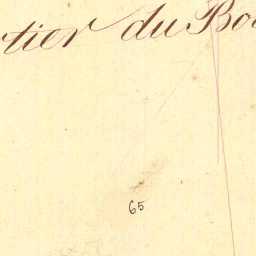 rtier du Bo
65